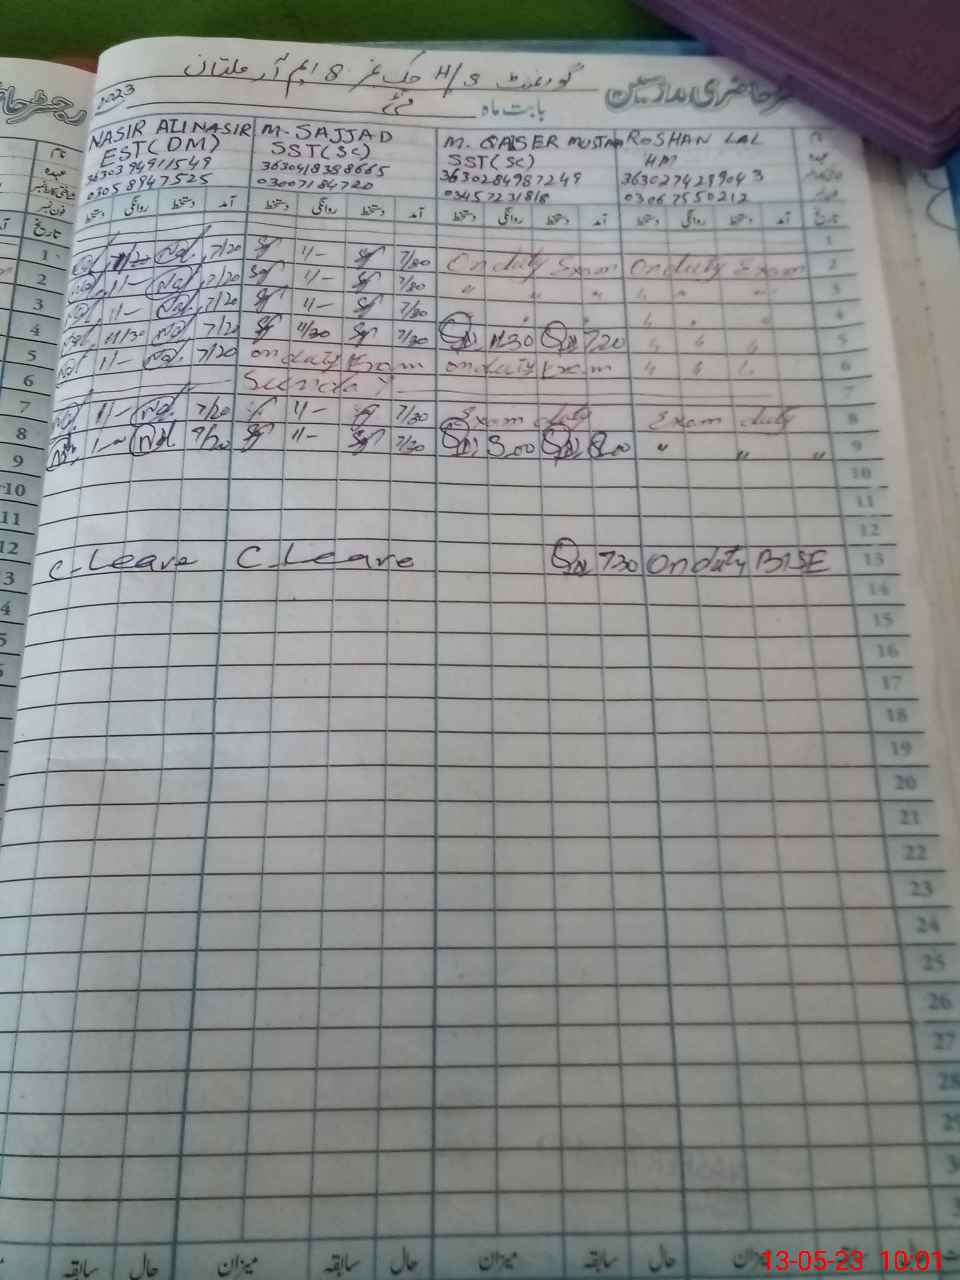 گورنمنٹ H/S چک نمبر 8 ایم آر ملتان
حاضری ملازمین
2023
بابت ماہ مئی
NASIR ALI NASIR
EST (DM)
3630394911549
03058947525
M. SAJJAD
SST (SC)
3630418388665
03007184720
M. QAISER MUSTAFA
SST (SC)
3630284987249
03457231818
ROSHAN LAL
HM
3630274289043
03067550212
نام
عہدہ
تاریخ آمد دستخط روانگی دستخط آمد دستخط روانگی دستخط آمد دستخط روانگی دستخط آمد دستخط روانگی دستخط
1
7/20 11/20 7/30 11/- On duty Exam On duty Exam 2
7/20 11/- 7/30 11/- " " " " " " 3
7/20 11/- 7/30 11/- 4
7/20 11/30 7/30 11/30 11:30 7:20 " " " 5
7/20 11/- on duty Exam on duty Exam " " " 6
Sunday 7
7/20 11/- 7/30 11/- Exam duty Exam duty 8
7/20 1- 7/30 11/- 3.00 8.00 " " " 9
10
11
12
C_Leave C_Leave 730 On duty BISE 13
14
15
16
17
18
19
20
21
22
23
24
25
26
27
28
میزان حال سابقہ میزان حال سابقہ میزان حال سابقہ
13-05-23 10:01